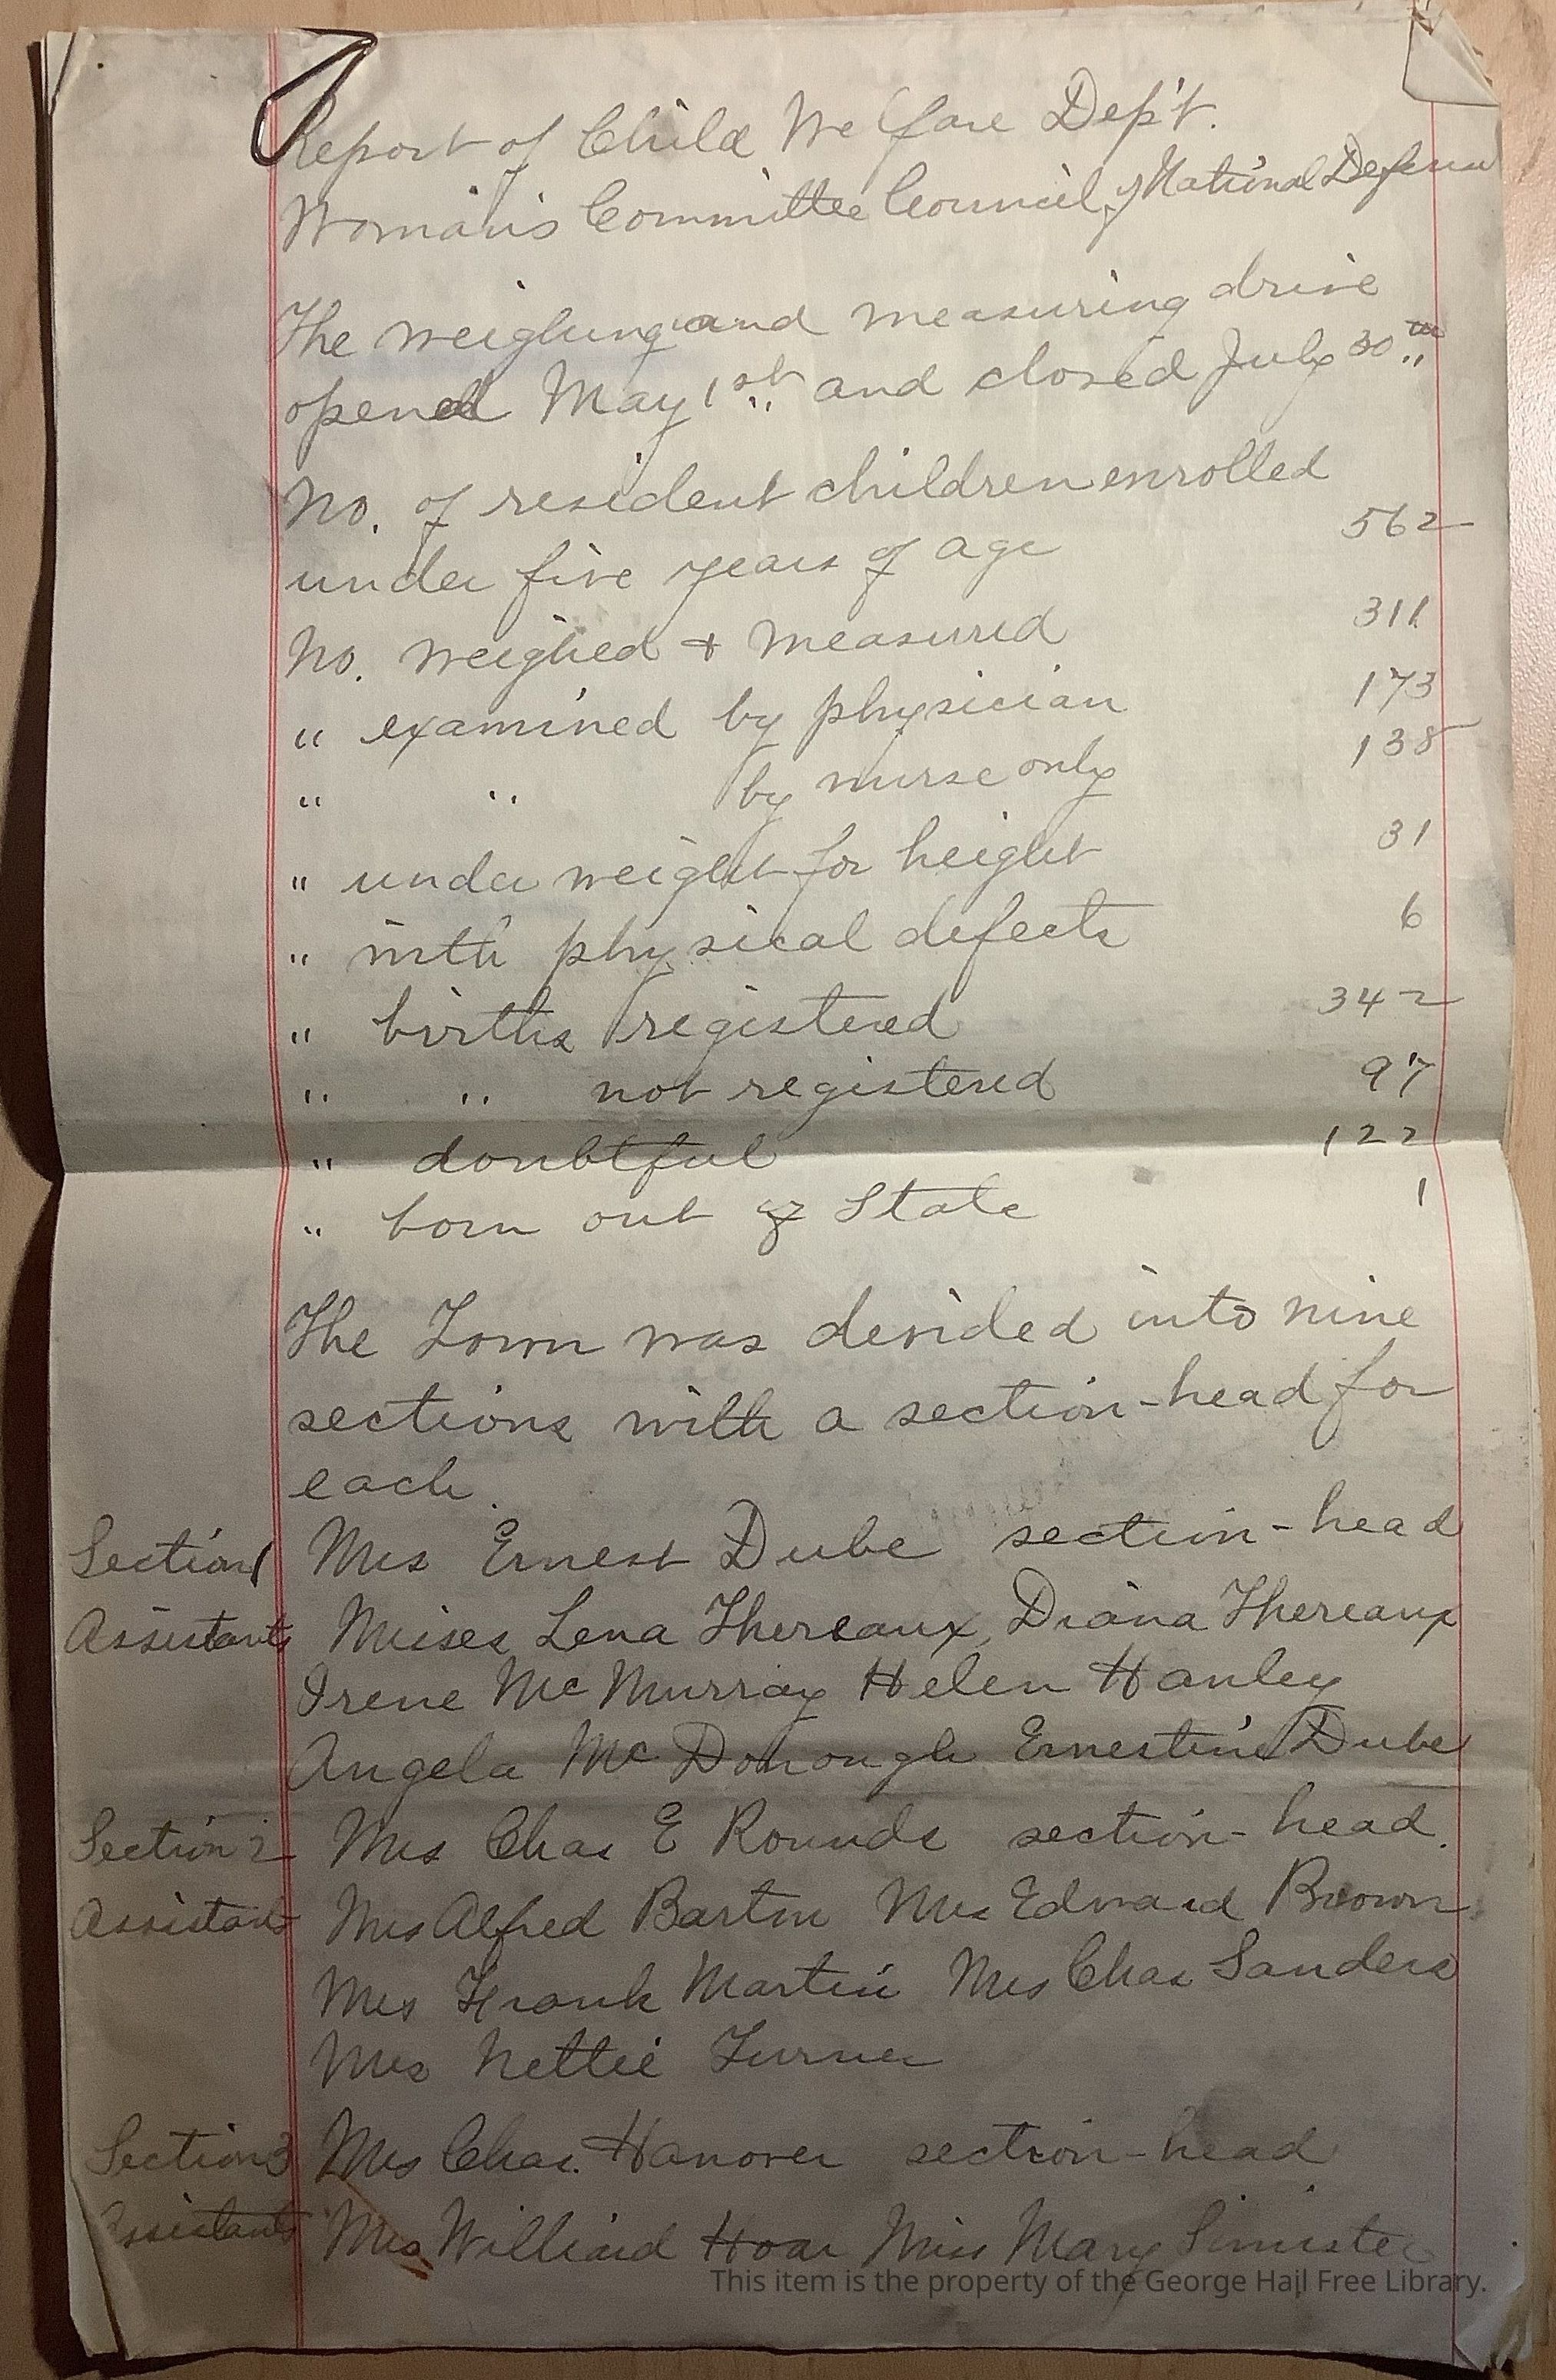 Report of Child Welfare Dep't.
Woman's Committee Council of National Defense
The weighing and measuring drive
opened May 1st and closed July 30th
No. of resident children enrolled
under five years of age 562
No. weighed + measured 311
" examined by physician 173
" " by nurse only 138
" under weight for height 31
" with physical defects 6
" births registered 342
" " not registered 97
" doubtful 122
" born out of State 1
The Town was devided into nine
sections with a section-head for
each.
Section 1 Mrs Ernest Dube section-head
Assistants Misses Lena Thereaux, Diana Thereaux
Irene McMurray Helen Hanley
Angela McDonough Ernestine Dube
Section 2 Mrs Chas E Rounds section-head.
Assistants Mrs Alfred Barton Mrs Edward Brown
Mrs Frank Martin Mrs Chas Sanders
Mrs Nettie Turner
Section 3 Mrs Chas. Hanover section-head
Assistants Mrs Williard Hoar Miss Mary Simister
This item is the property of the George Hail Free Library.